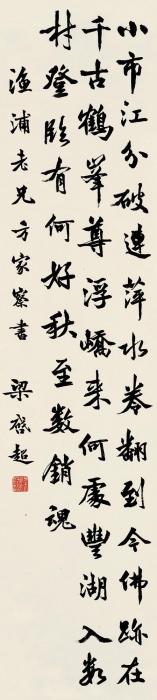 小市江分破連萍水卷翻到今佛跡在
千古鶴峯尊浮嶠來何處豐湖入數
村登臨有何好秋至數銷魂
漁浦老兄方家察書 梁啓超